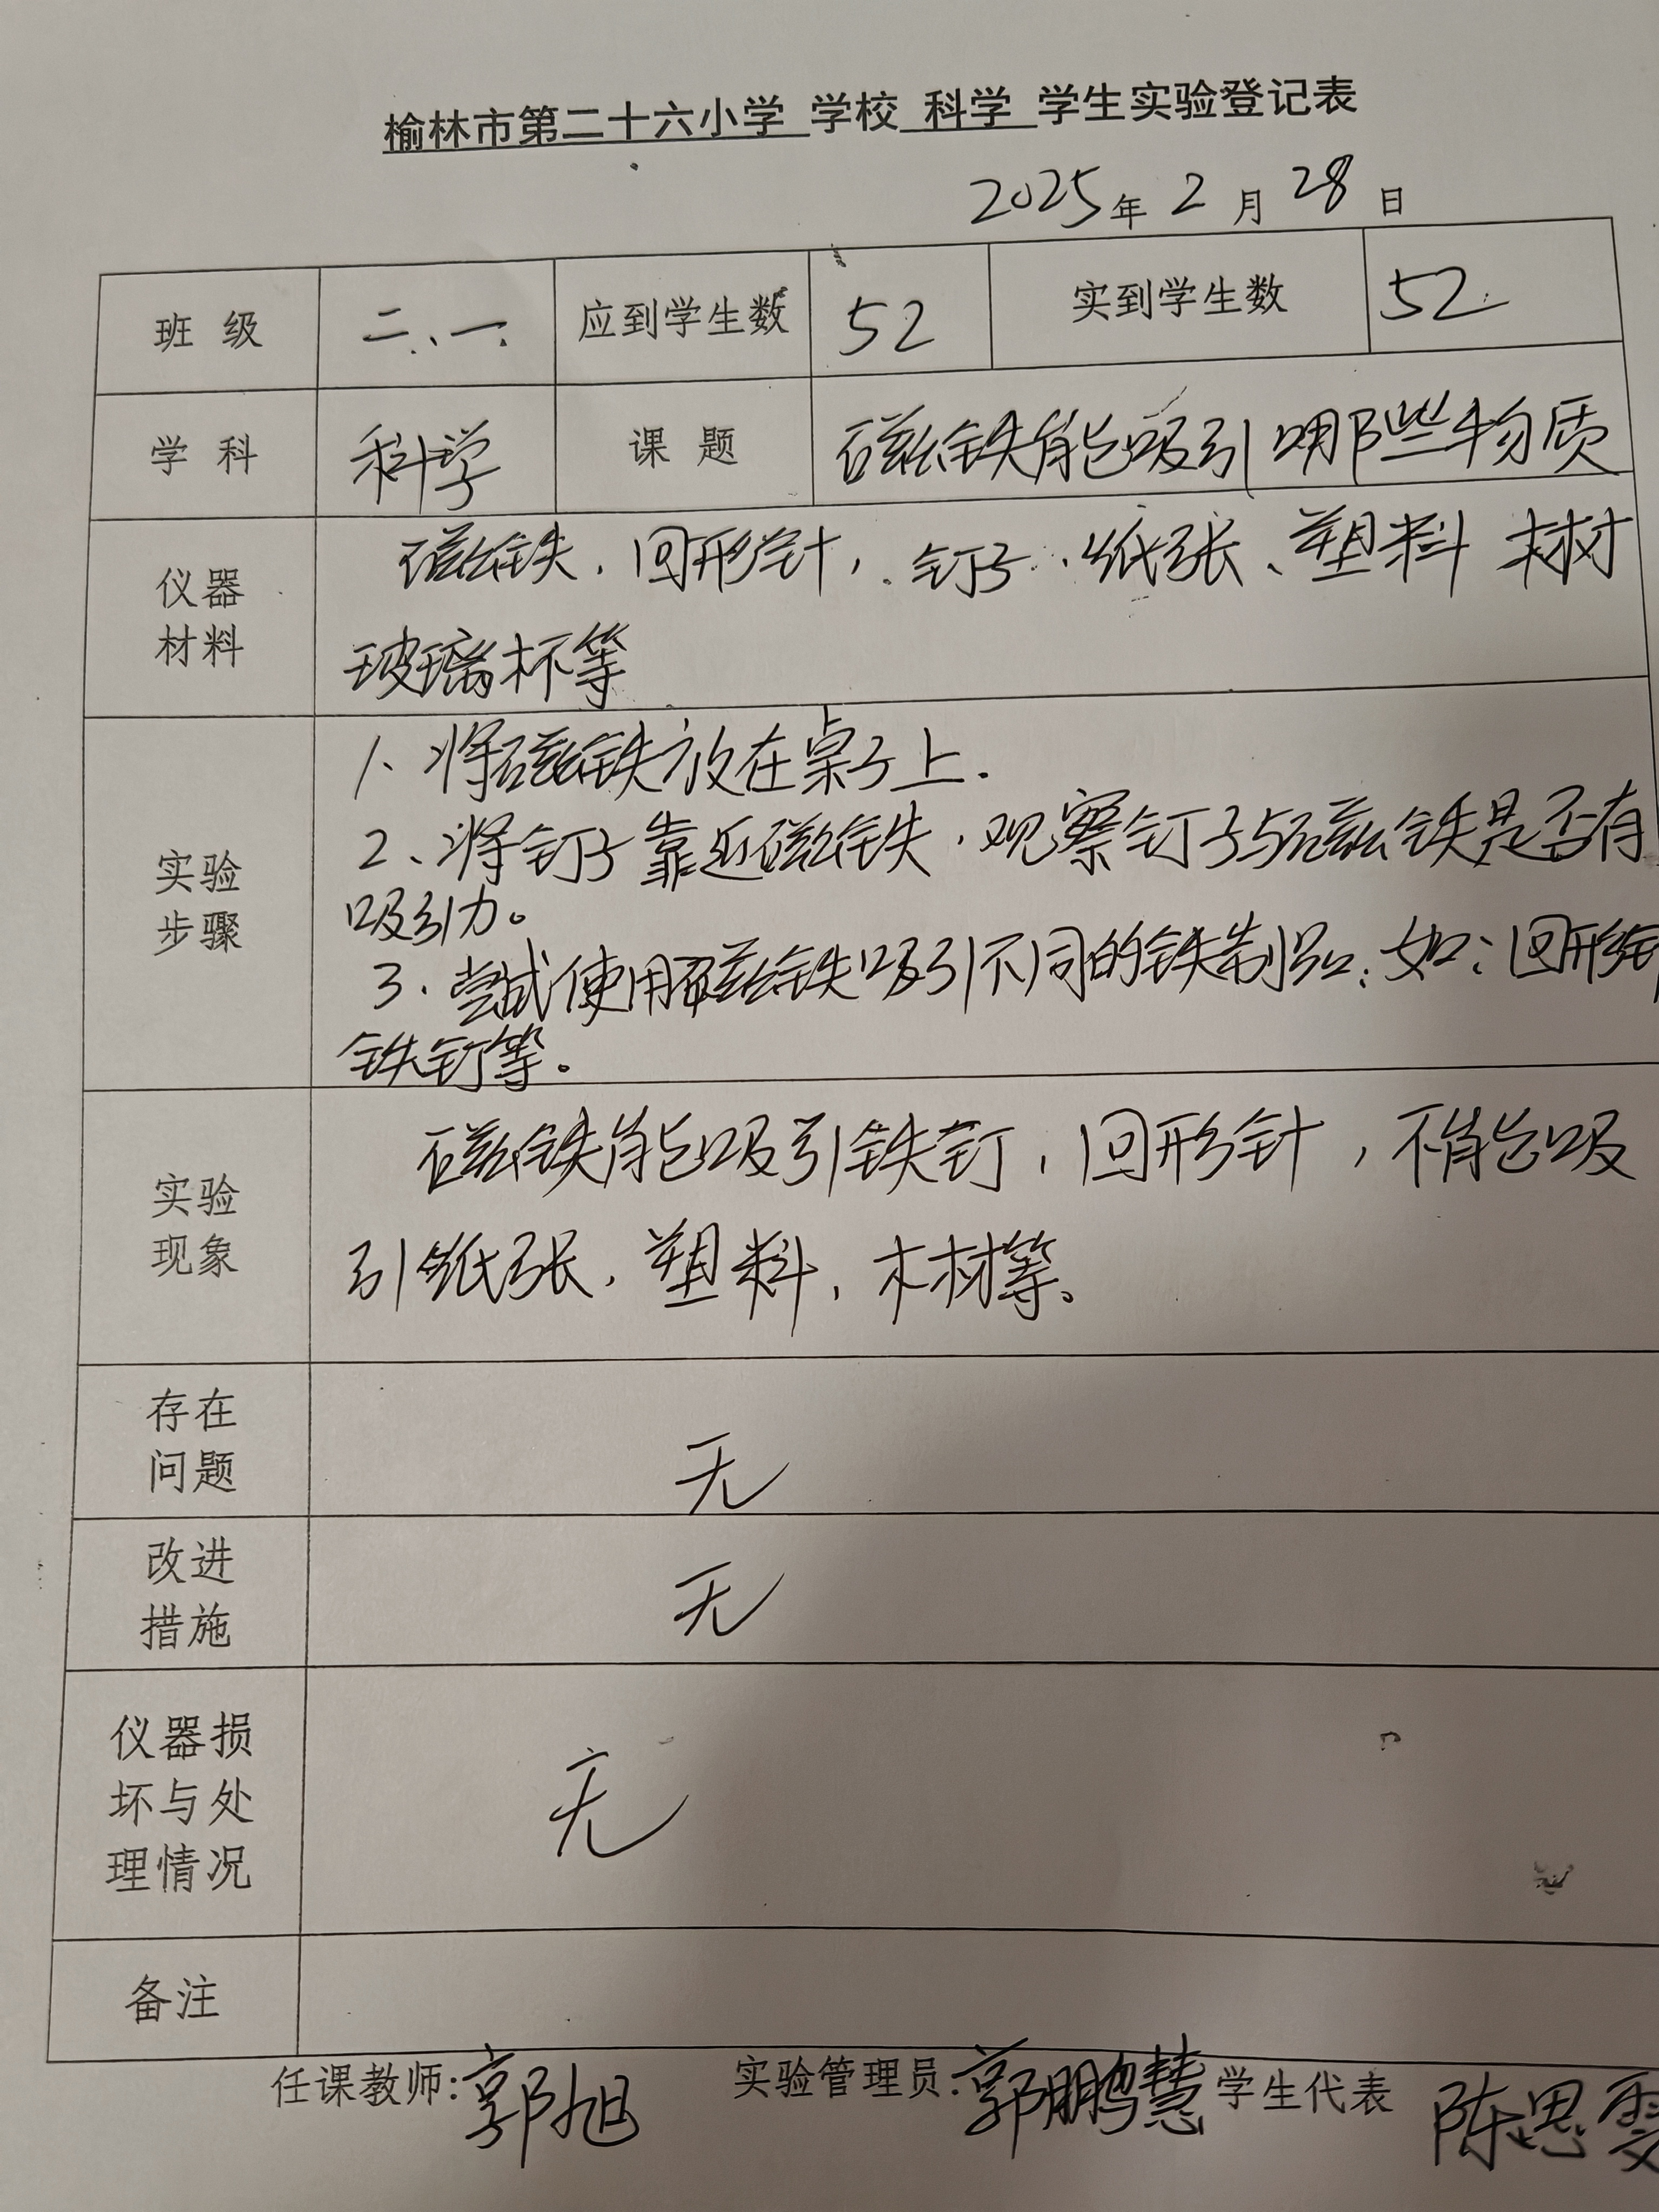 榆林市第二十六小学 学校 科学 学生实验登记表
2025年2月28日
班级 二、一 应到学生数 52 实到学生数 52
学科 科学 课题 磁铁能吸引哪些物质
仪器材料
磁铁,回形针,钉子、纸张、塑料 木材
玻璃杯等
实验步骤
1、将磁铁放在桌子上.
2、将钉子靠近磁铁,观察钉子与磁铁是否有
吸引力。
3.尝试使用磁铁吸引不同的铁制品:如:回形针
铁钉等。
实验现象
磁铁能吸引铁钉,回形针,不能吸
引纸张,塑料,木材等。
存在问题
无
改进措施
无
仪器损坏与处理情况
无
备注
任课教师:郭旭 实验管理员:郭鹏慧 学生代表 陈思雯